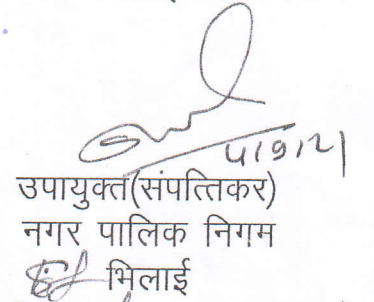 4/9/21
उपायुक्त(संपत्तिकर)
नगर पालिक निगम
भिलाई